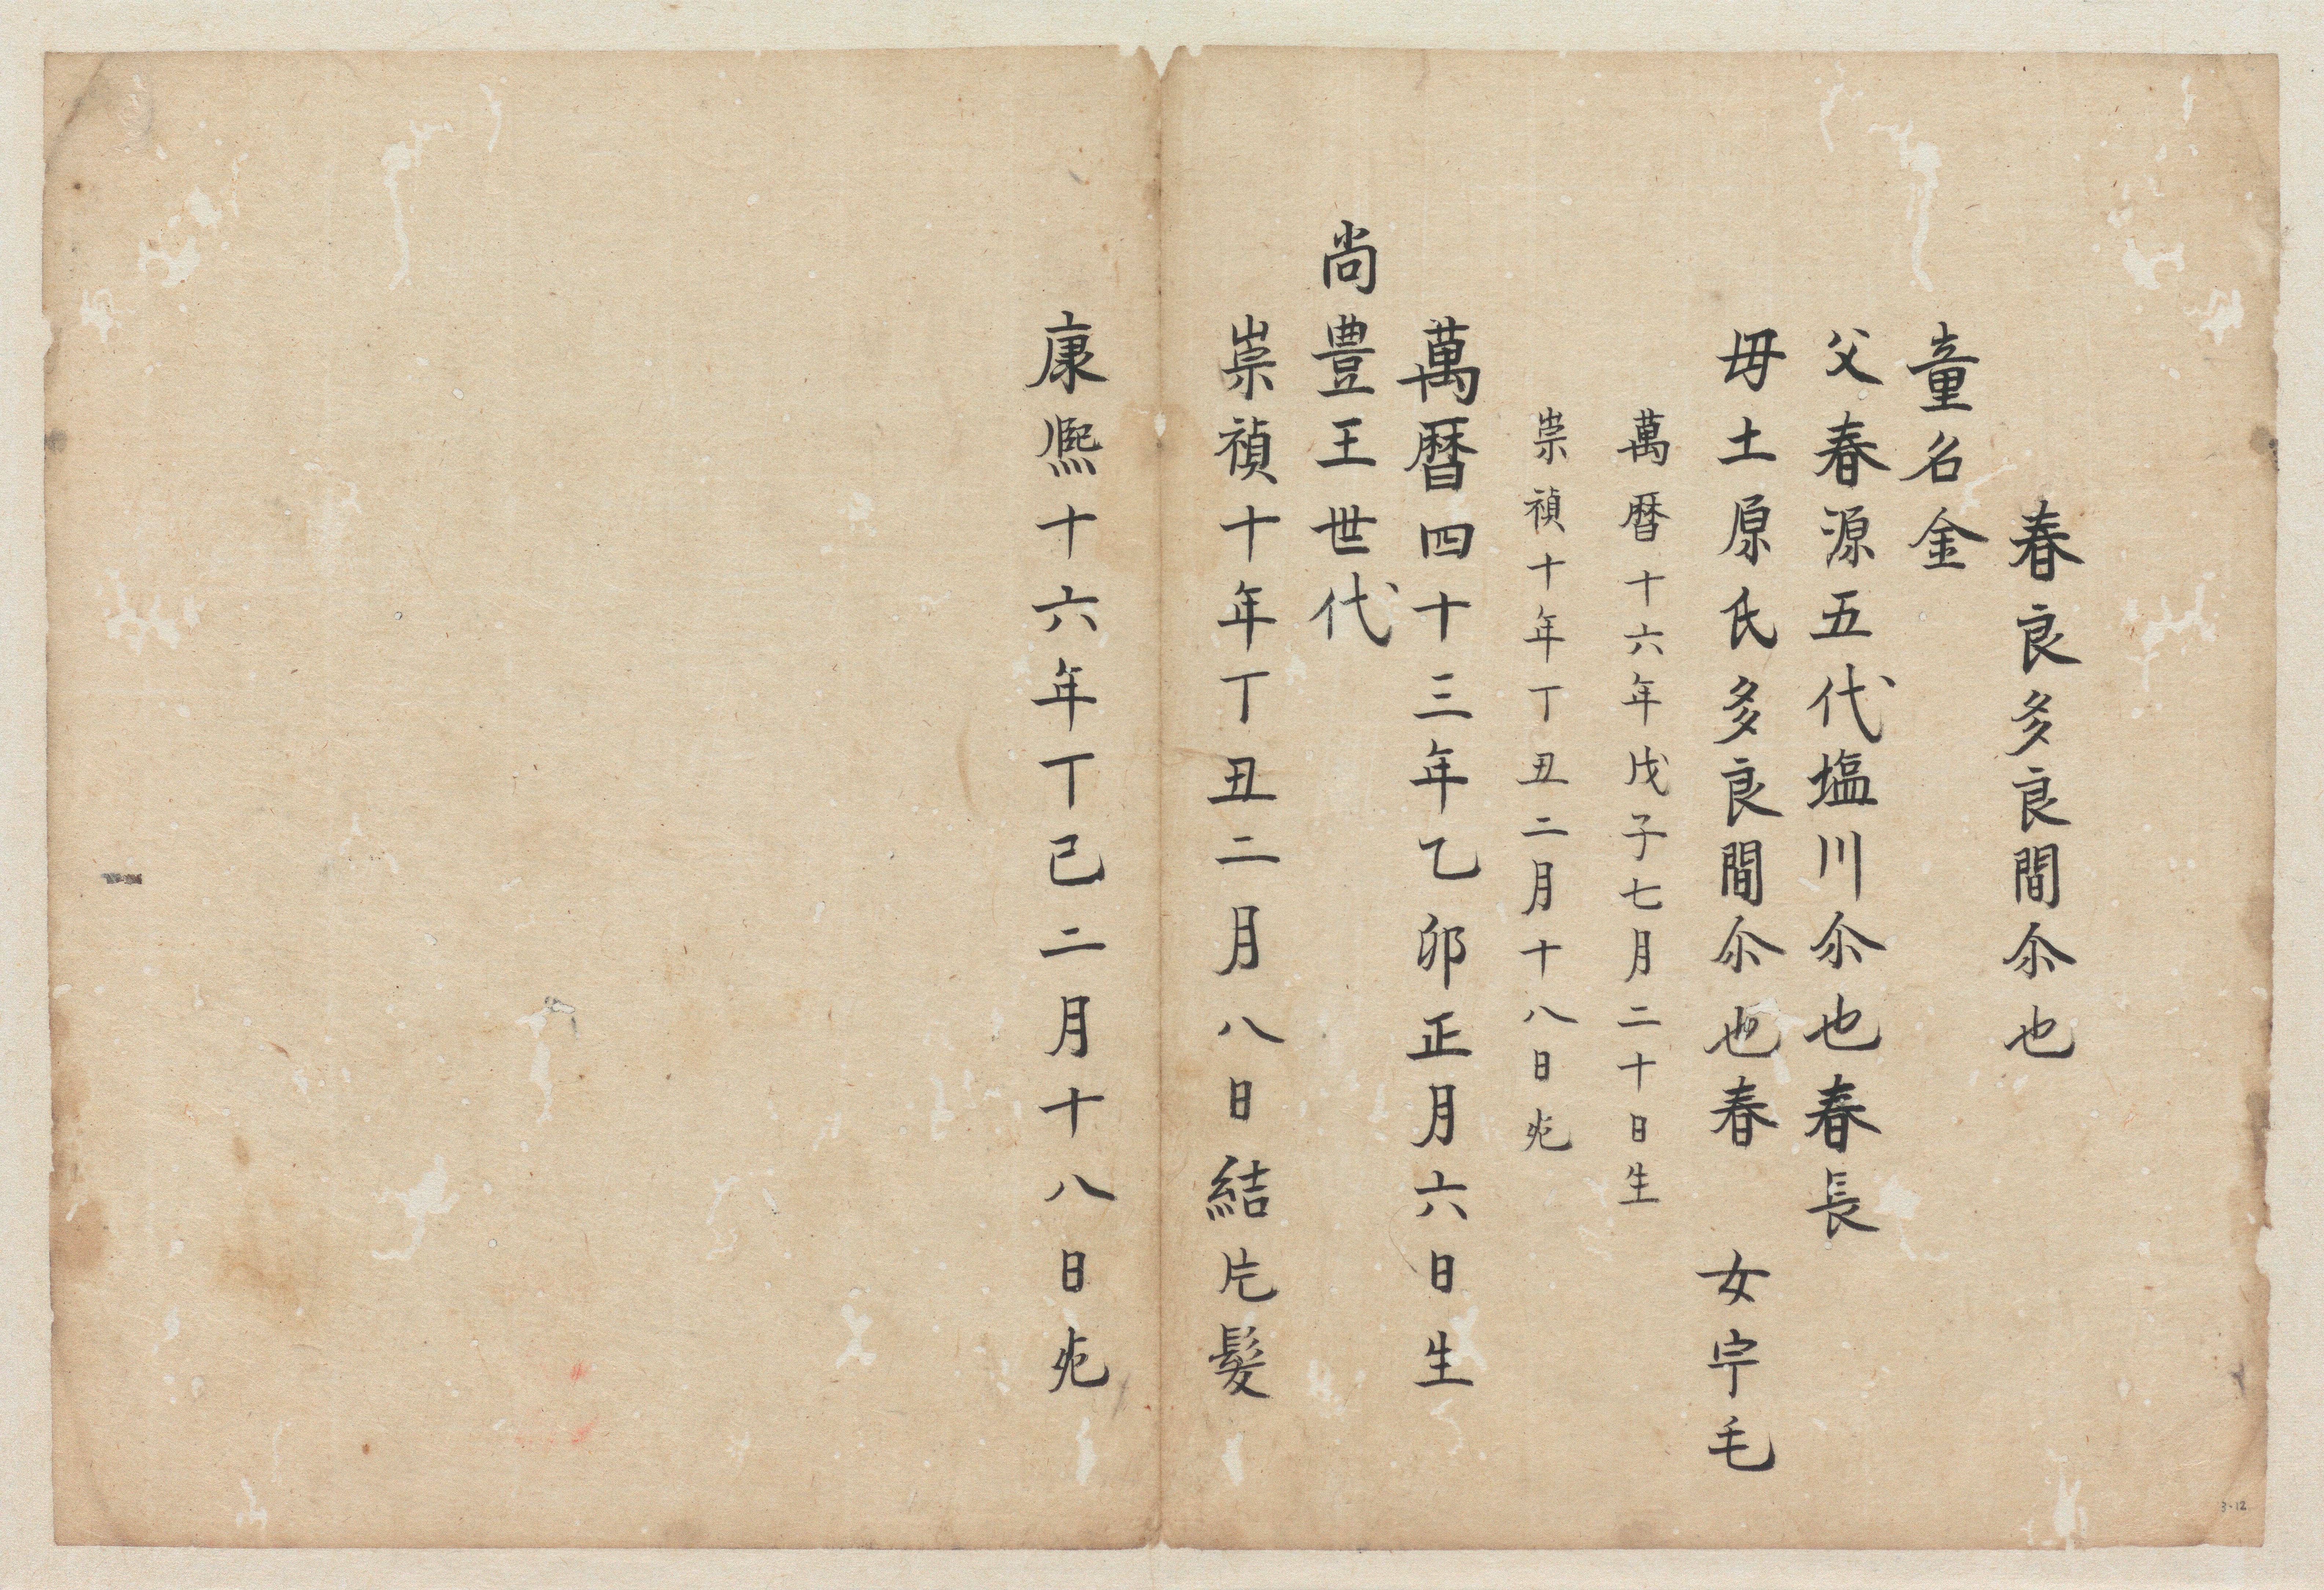 春良多良間尒也
童名金
父春源五代塩川尒也春長
毋土原氏多良間尒也春 女宇毛
萬暦十六年戊子七月二十日生
崇禎十年丁丑二月十八日死
萬暦四十三年乙卯正月六日生
尚豊王世代
崇禎十年丁丑二月八日結片髮
康熈十六年丁巳二月十八日死
3-12